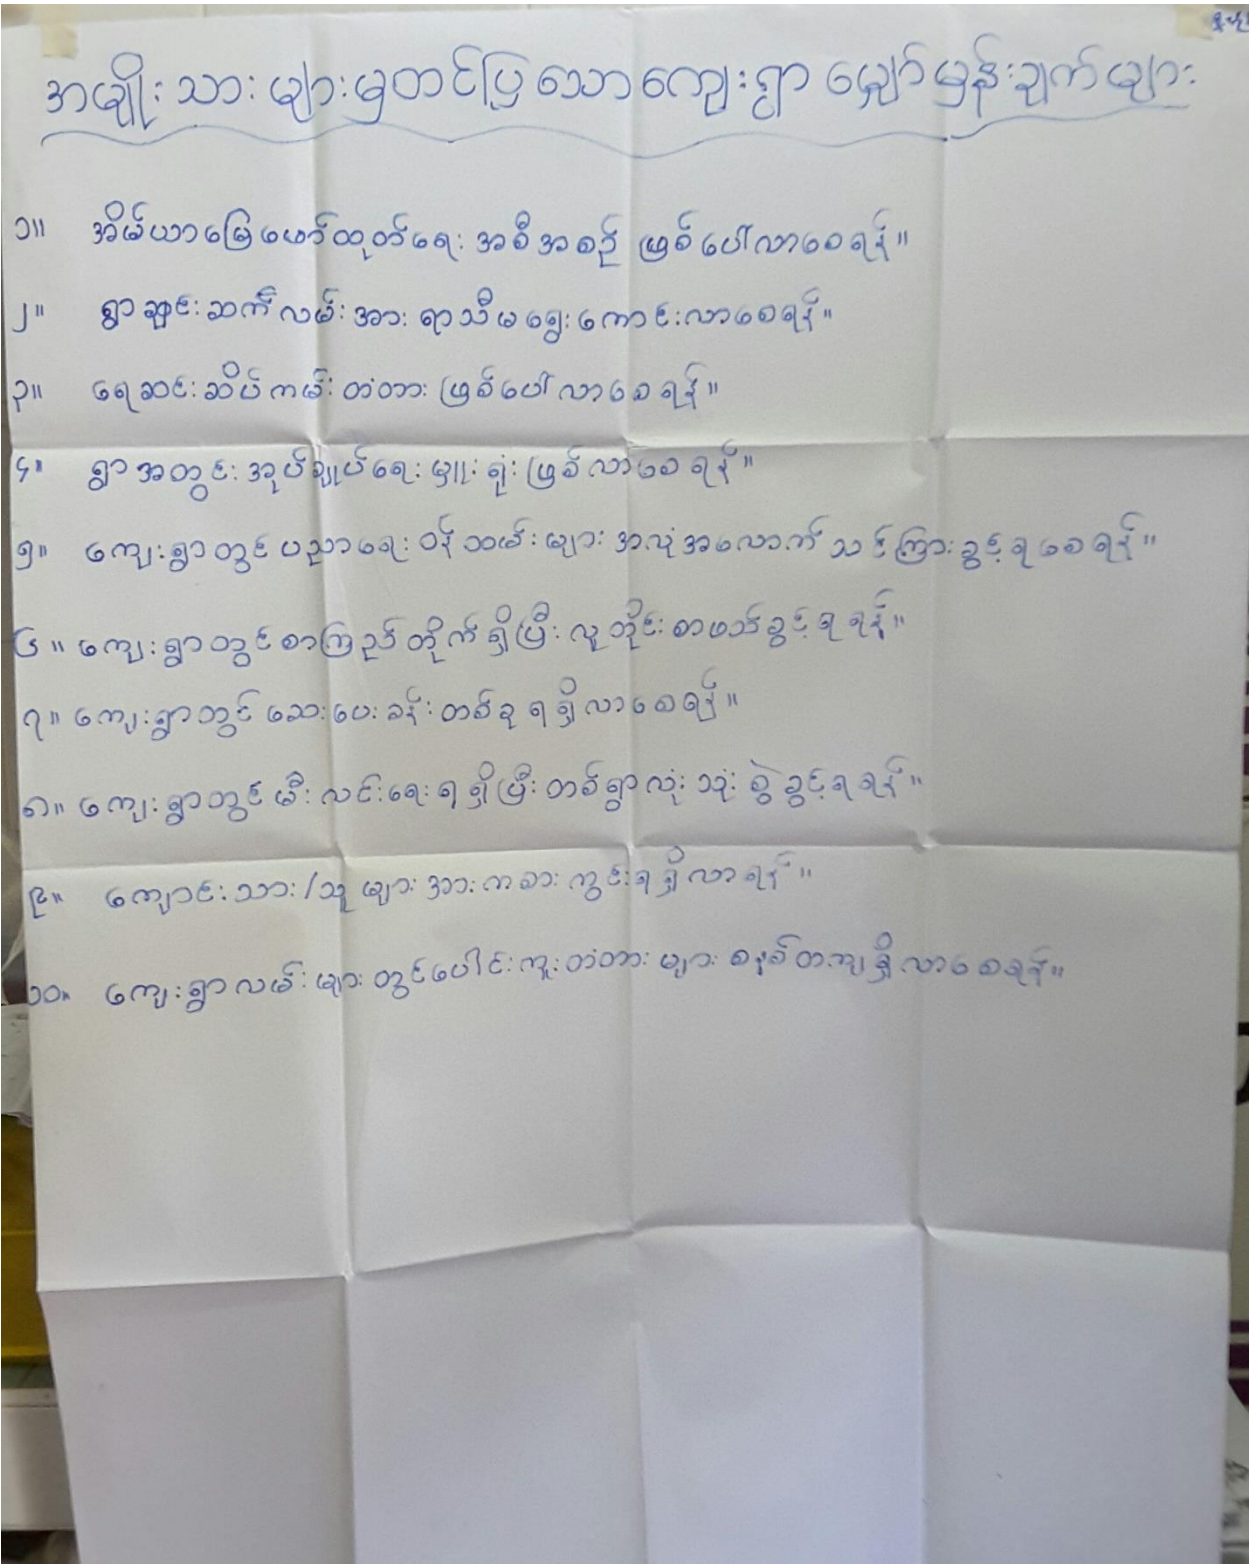 အမျိုးသားများမှတင်ပြသောကျေးရွာ မျှော်မှန်းချက်များ
၁။ အိမ်ယာမြေဖော်ထုတ်ရေး အစီအစဉ် ဖြစ်ပေါ်လာစေရန်။
၂။ ရွာချင်းဆက်လမ်းအား ရာသီမရွေးကောင်းလာစေရန်။
၃။ ရေဆင်းဆိပ်ကမ်းတံတား ဖြစ်ပေါ်လာစေရန်။
၄။ ရွာအတွင်း အုပ်ချုပ်ရေးမှူးရုံး ဖြစ်လာစေရန်။
၅။ ကျေးရွာတွင် ပညာရေး ဝန်ထမ်းများ အလုံအလောက် သင်ကြားခွင့်ရစေရန်။
၆။ ကျေးရွာတွင် စာကြည့်တိုက်ရှိပြီး လူတိုင်းစာဖတ်ခွင့်ရရန်။
၇။ ကျေးရွာတွင် ဆေးပေးခန်းတစ်ခု ရရှိလာစေရန်။
၈။ ကျေးရွာတွင် မီးလင်းရေးရရှိပြီး တစ်ရွာလုံးသုံးစွဲခွင့်ရရန်။
၉။ ကျောင်းသား/သူများ အားကစားကွင်းရရှိလာရန်။
၁၀။ ကျေးရွာလမ်းများတွင်ပေါင်းကူးတံတားများ စနစ်တကျရှိလာစေရန်။